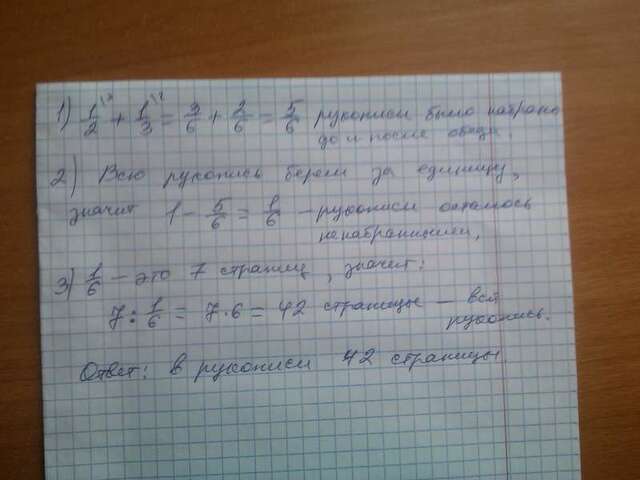 1) 1\3/2 + 1\2/3 = 3/6 + 2/6 = 5/6 рукописи было набрано
до и после обеда.
2) Всю рукопись берем за единицу,
значит 1 - 5/6 = 1/6 - рукописи осталось
ненабранными.
3) 1/6 - это 7 страниц, значит:
7 : 1/6 = 7·6 = 42 страницы - вся
рукопись.
Ответ: в рукописи 42 страницы.